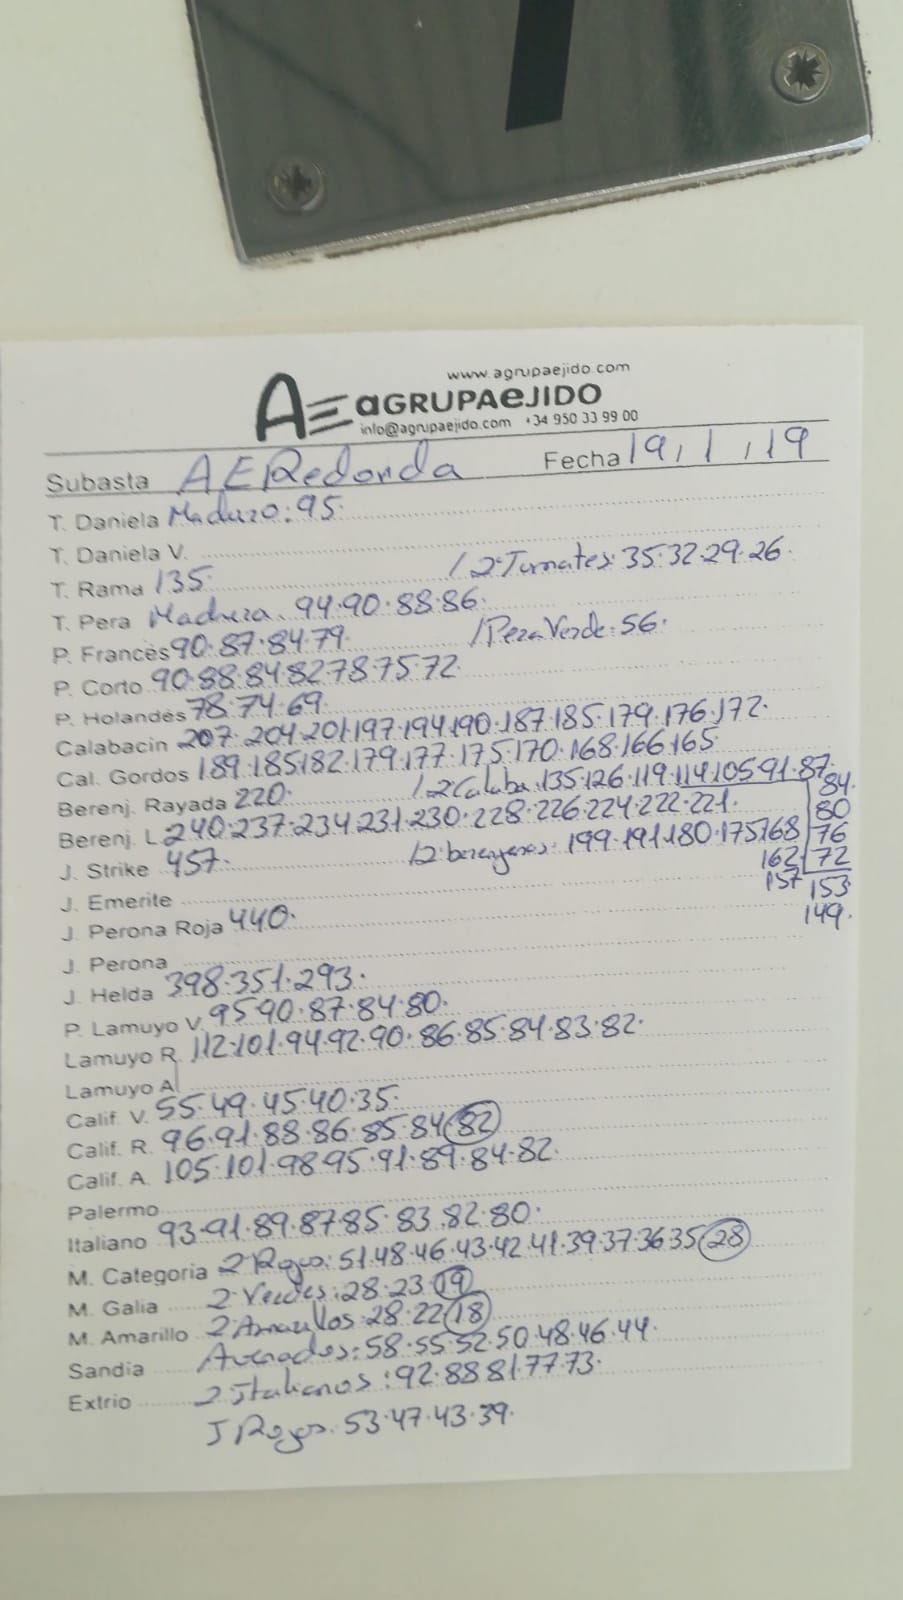 www.agrupaejido.com
AE aGRUPAeJIDO
info@agrupaejido.com +34 950 33 99 00
Subasta AERedonda Fecha 19/1/19
T. Daniela Maduro: 95.
T. Daniela V.
T. Rama 135. / 2ª Tomates: 35.32.29.26.
T. Pera Madura. 94.90.88.86.
P. Francés 90.87.84.79. / Pera Verde: 56.
P. Corto 90.88.84.82.78.75.72
P. Holandés 78.74.69.
Calabacín 207.204.201.197.194.190.187.185.179.176.172.
Cal. Gordos 189.185.182.179.177.175.170.168.166.165.
Berenj. Rayada 220. / 2ª Calaba. 135.126.119.114.105.91.87.
84
Berenj. L 240.237.234.231.230.228.226.224.222.221.
80
J. Strike 457. / 2ª berenjenas: 199.191.180.175.168
76
162. 72
J. Emerite
157 153
149.
J. Perona Roja 440.
J. Perona
J. Helda 398.351.293.
P. Lamuyo V. 95.90.87.84.80.
Lamuyo R. 112.101.94.92.90.86.85.84.83.82.
Lamuyo A.
Calif. V. 55.49.45.40.35.
Calif. R. 96.91.88.86.85.84 82
Calif. A. 105.101.98.95.91.89.84.82.
Palermo
Italiano 93.91.89.87.85.83.82.80.
M. Categoria 2ª Rojos: 51.48.46.43.42.41.39.37.36.35 28
M. Galia 2ª Verdes: 28.23. 19
M. Amarillo 2ª Amarillos: 28.22 18
Sandía Asurados: 58.55.52.50.48.46.44.
Extrio 2ª Italianos: 92.88.81.77.73.
J Rojos: 53.47.43.39.